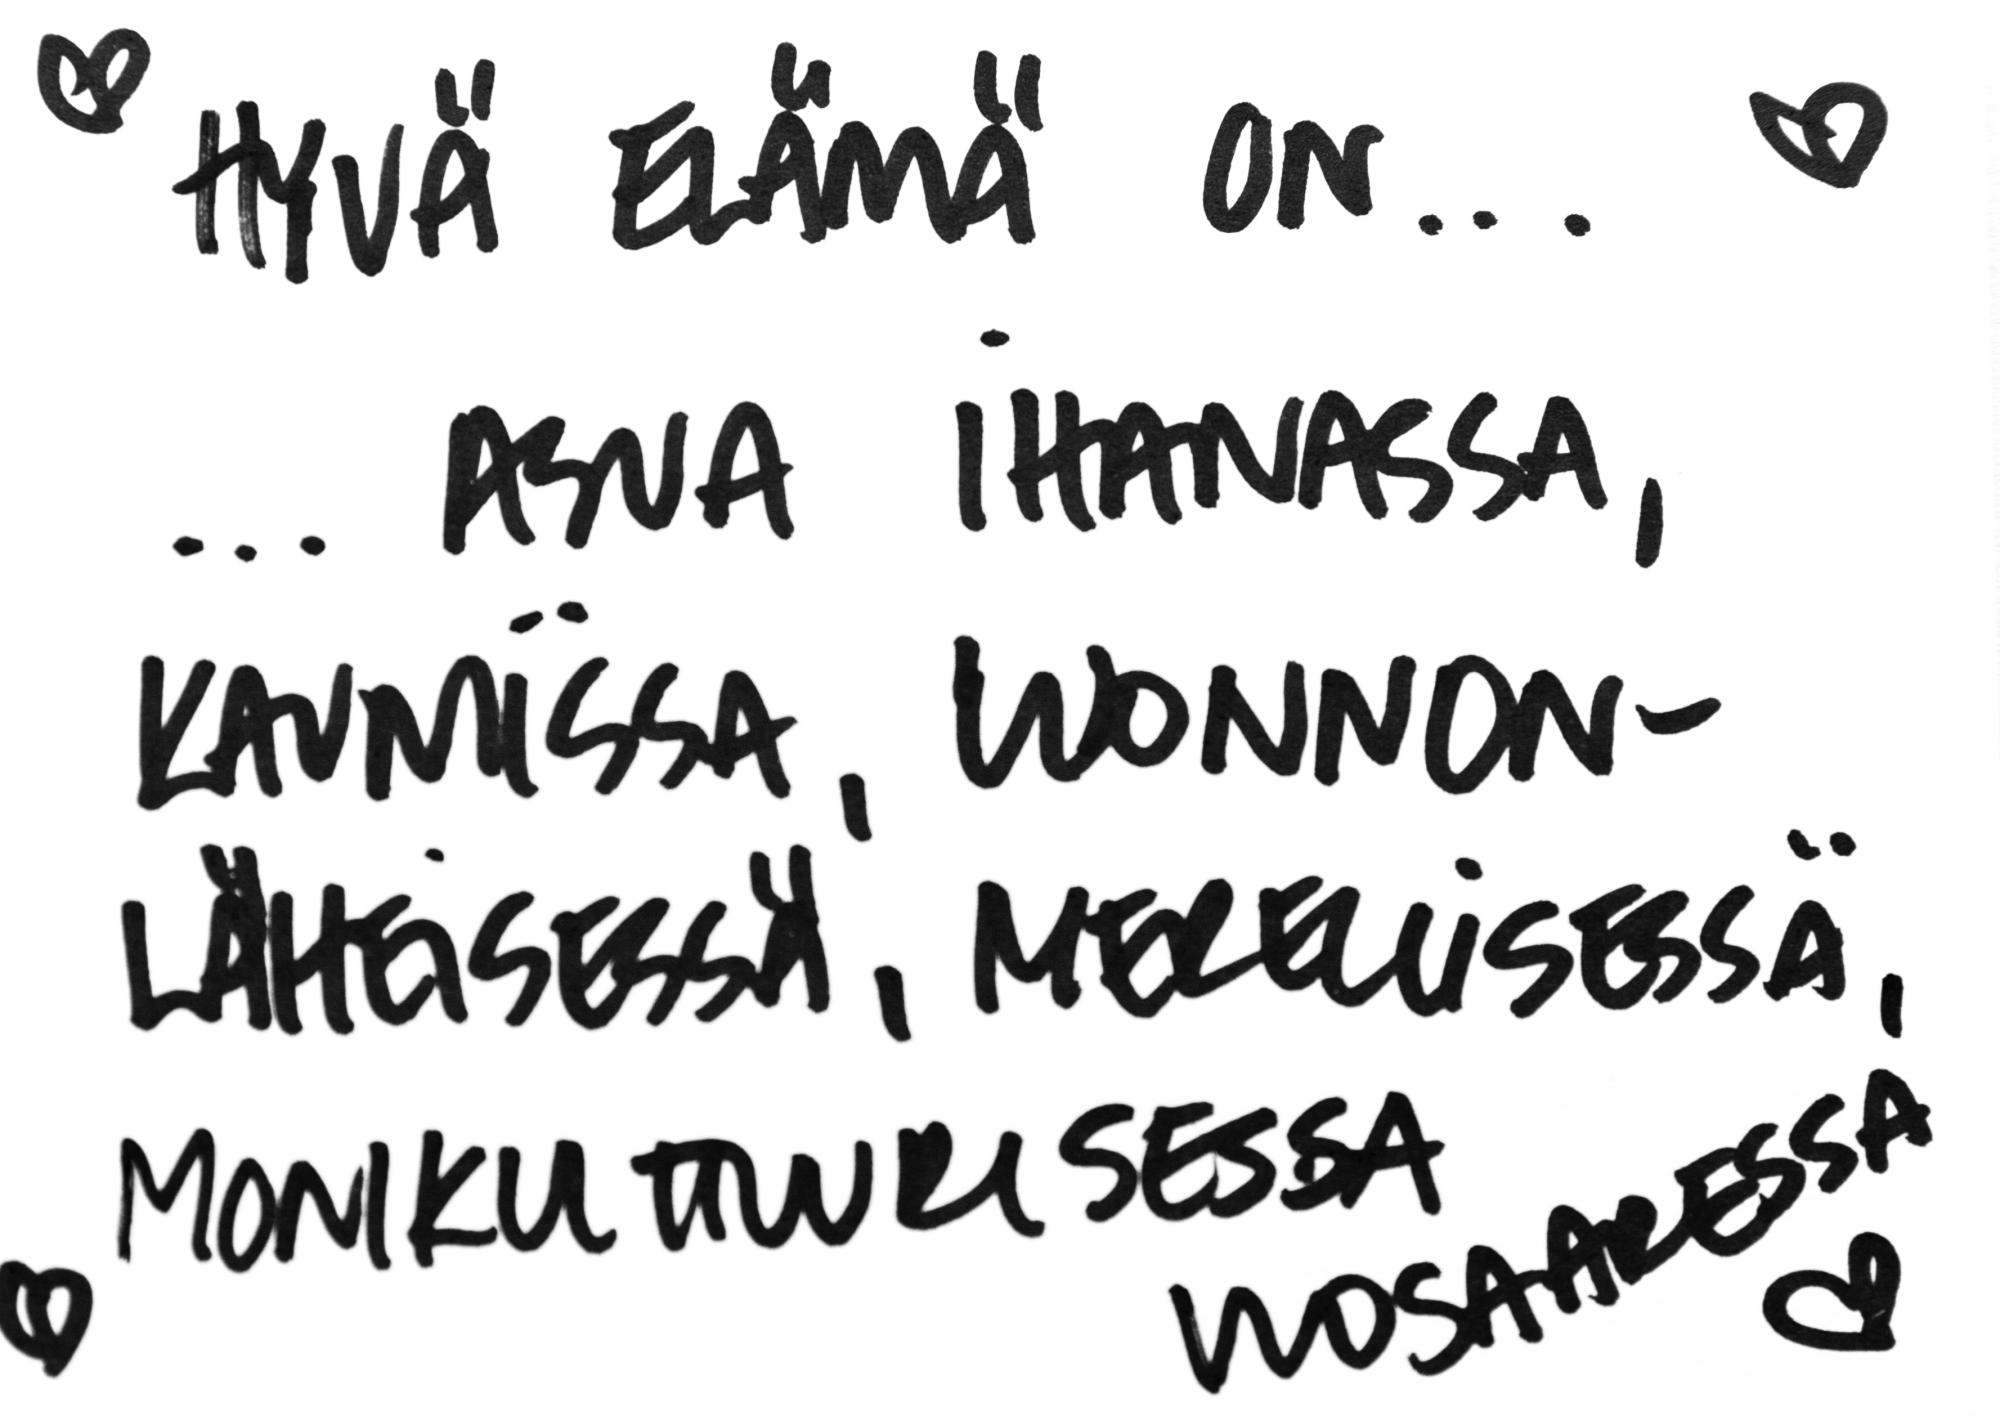 HYVÄ ELÄMÄ ON...
... ASUA IHANASSA,
KAUNIISSA, LUONNON-
LÄHEISESSÄ, MERELLISESSÄ,
MONIKULTTUURISESSA
VUOSAARESSA